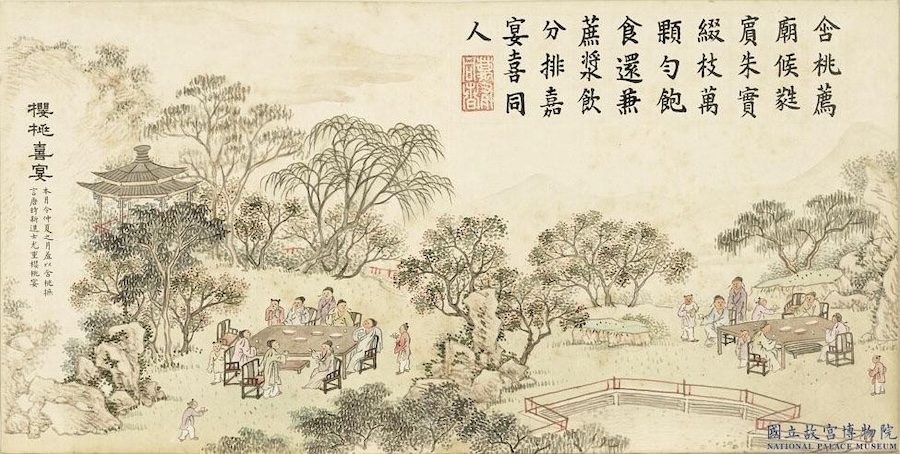 含桃薦
廟候蕤
賔朱實
綴枝萬
顆勻飽
食還兼
蔗漿飲
分排嘉
宴喜同
人
櫻桃喜宴
本月令仲夏之月羞以含桃摭
言唐時新進士尤重櫻桃宴
國立故宮博物院
NATIONAL PALACE MUSEUM